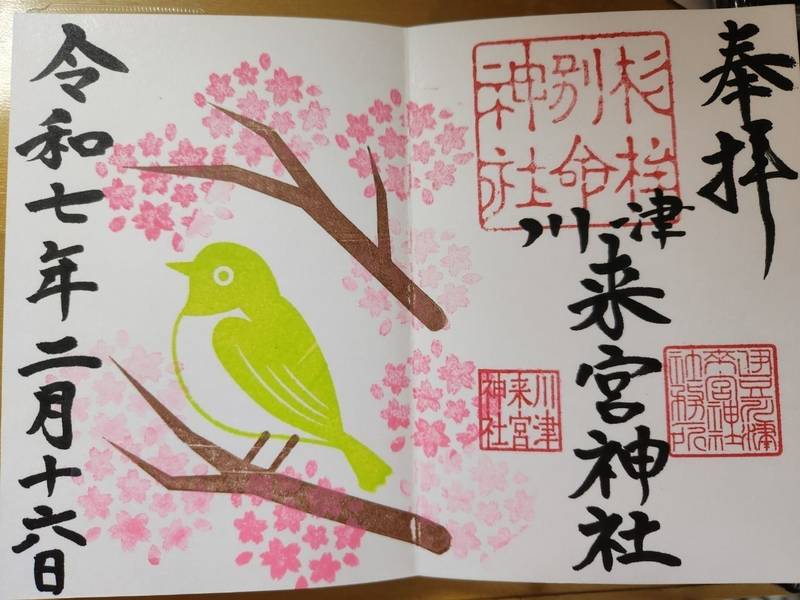 奉拝
杉桙
別命
神社
川津
来宮神社
川津
来宮
神社
来宮神社
社務所
令和七年二月十六日